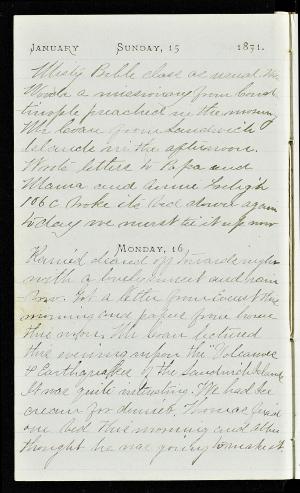 JANUARY SUNDAY, 15 1871.
Misty Bible class as usual. Mr
Woods a missionary from Const
tinople preached in the morning
Mr Coan from Sandwich
Islands in the afternoon.
Wrote letters to Papa and
Mama and Annie
106 C broke its bed down again
today we must tie it up now
MONDAY, 16
Rained cleared off towards night
with a lovely sunset and rain
bow. Got a letter from the
morning and paper from home
this noon. Mr Coan lectured
this evening upon the "Volcanoe
& Earthquakes of the Sandwich Islands
It was quite interesting. We had Ice
cream for dinner. Thomas fixed
our bed this morning and Allie
thought he was going to make it